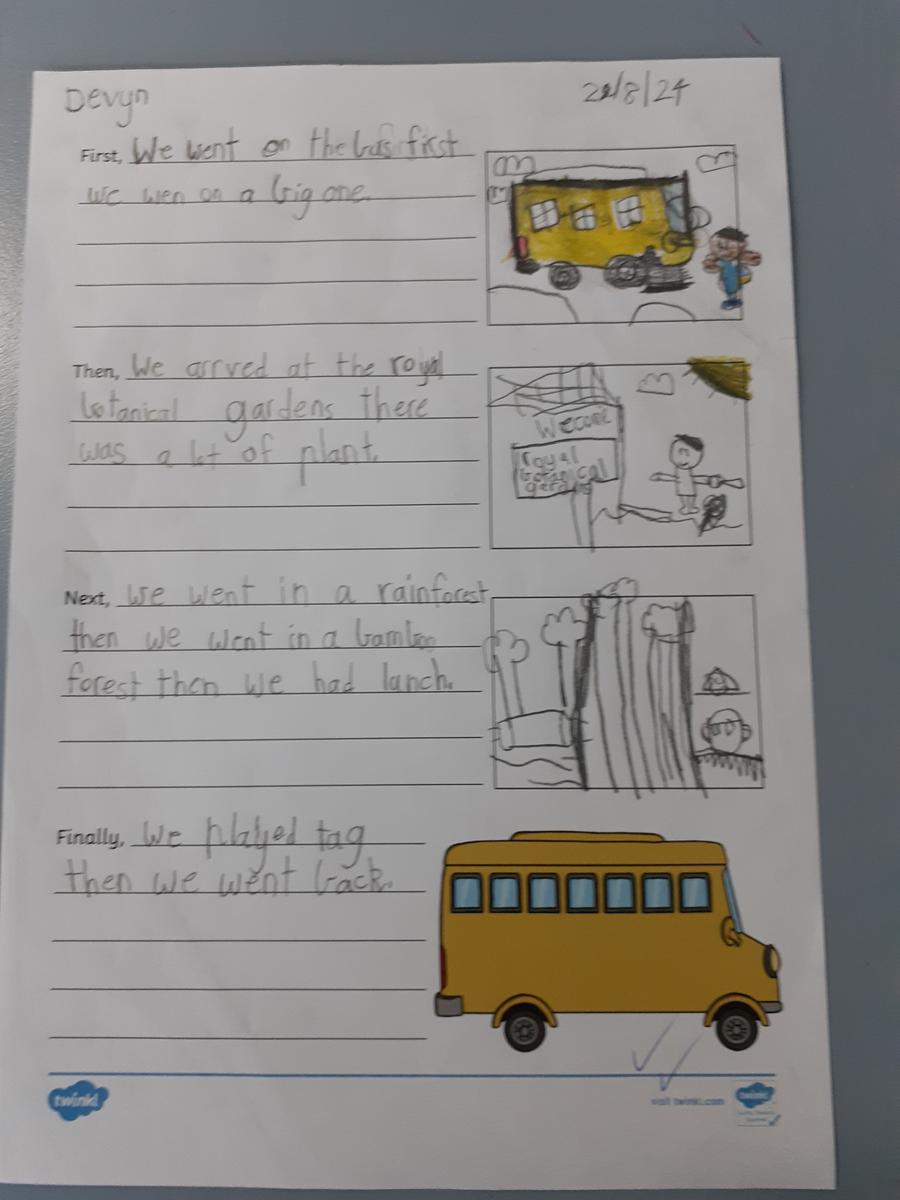 Devyn
22/8/24
First, We went on the bus first
we wen on a big one.
Then, We arrved at the royal
botanical gardens there
was a lot of plant.
Wecome
royal
botanical
gardens
Next, we went in a rainforest
then we went in a bamboo
forest then we had lunch.
Finally, We played tag
then we went back.
twinkl
visit twinkl.com
twinkl